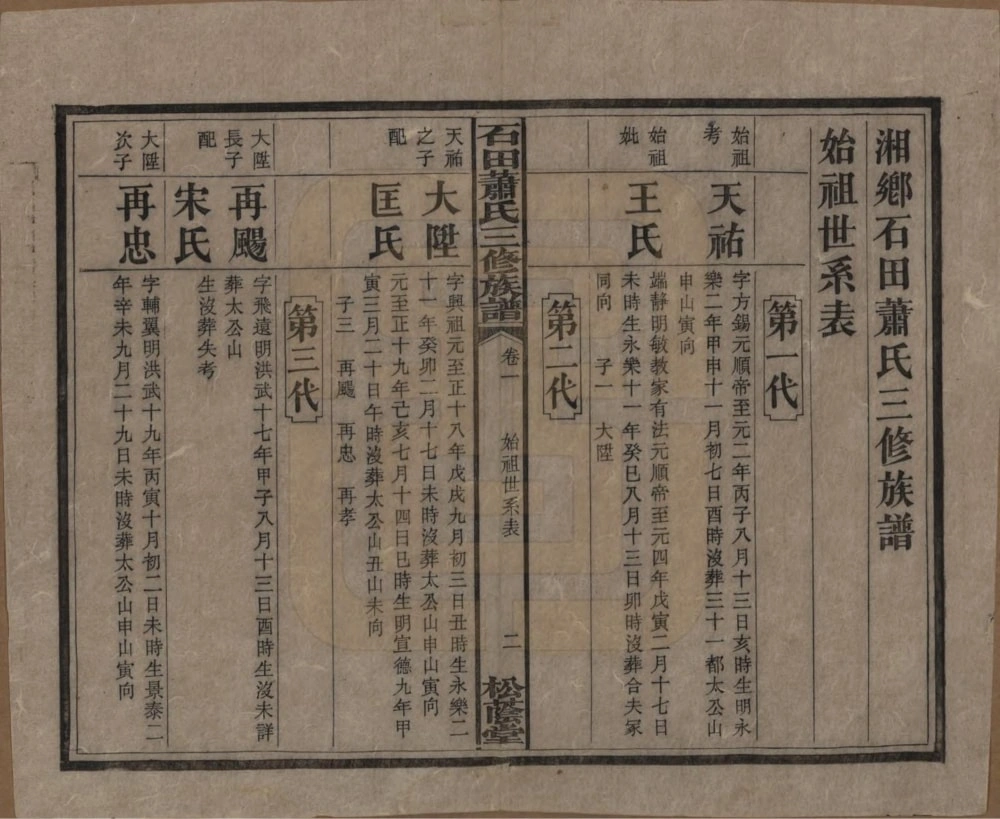 湘鄉石田蕭氏三修族譜
始祖世系表
第一代
始祖
考
天祐
字方錫元順帝至元二年丙子八月十三日亥時生明永
樂二年甲申十一月初七日酉時沒葬三十一都太公山
申山寅向
始祖
妣
王氏
端靜明敏教家有法元順帝至元四年戊寅二月十七日
未時生永樂十一年癸巳八月十三日卯時沒葬合夫冢
同向 子一 大陞
第二代
石田蕭氏三修族譜
卷一
始祖世系表
二
松蔭堂
天祐
之子
大陞
字興祖元至正十八年戊戌九月初三日丑時生永樂二
十一年癸卯二月十七日未時沒葬太公山申山寅向
配
匡氏
元至正十九年己亥七月十四日巳時生明宣德九年甲
寅三月二十日午時沒葬太公山丑山未向
子三 再颺 再忠 再孝
第三代
大陞
長子
再颺
字飛遠明洪武十七年甲子八月十三日酉時生沒未詳
葬太公山
配
宋氏
生沒葬失考
大陞
次子
再忠
字輔翼明洪武十九年丙寅十月初二日未時生景泰二
年辛未九月二十九日未時沒葬太公山申山寅向